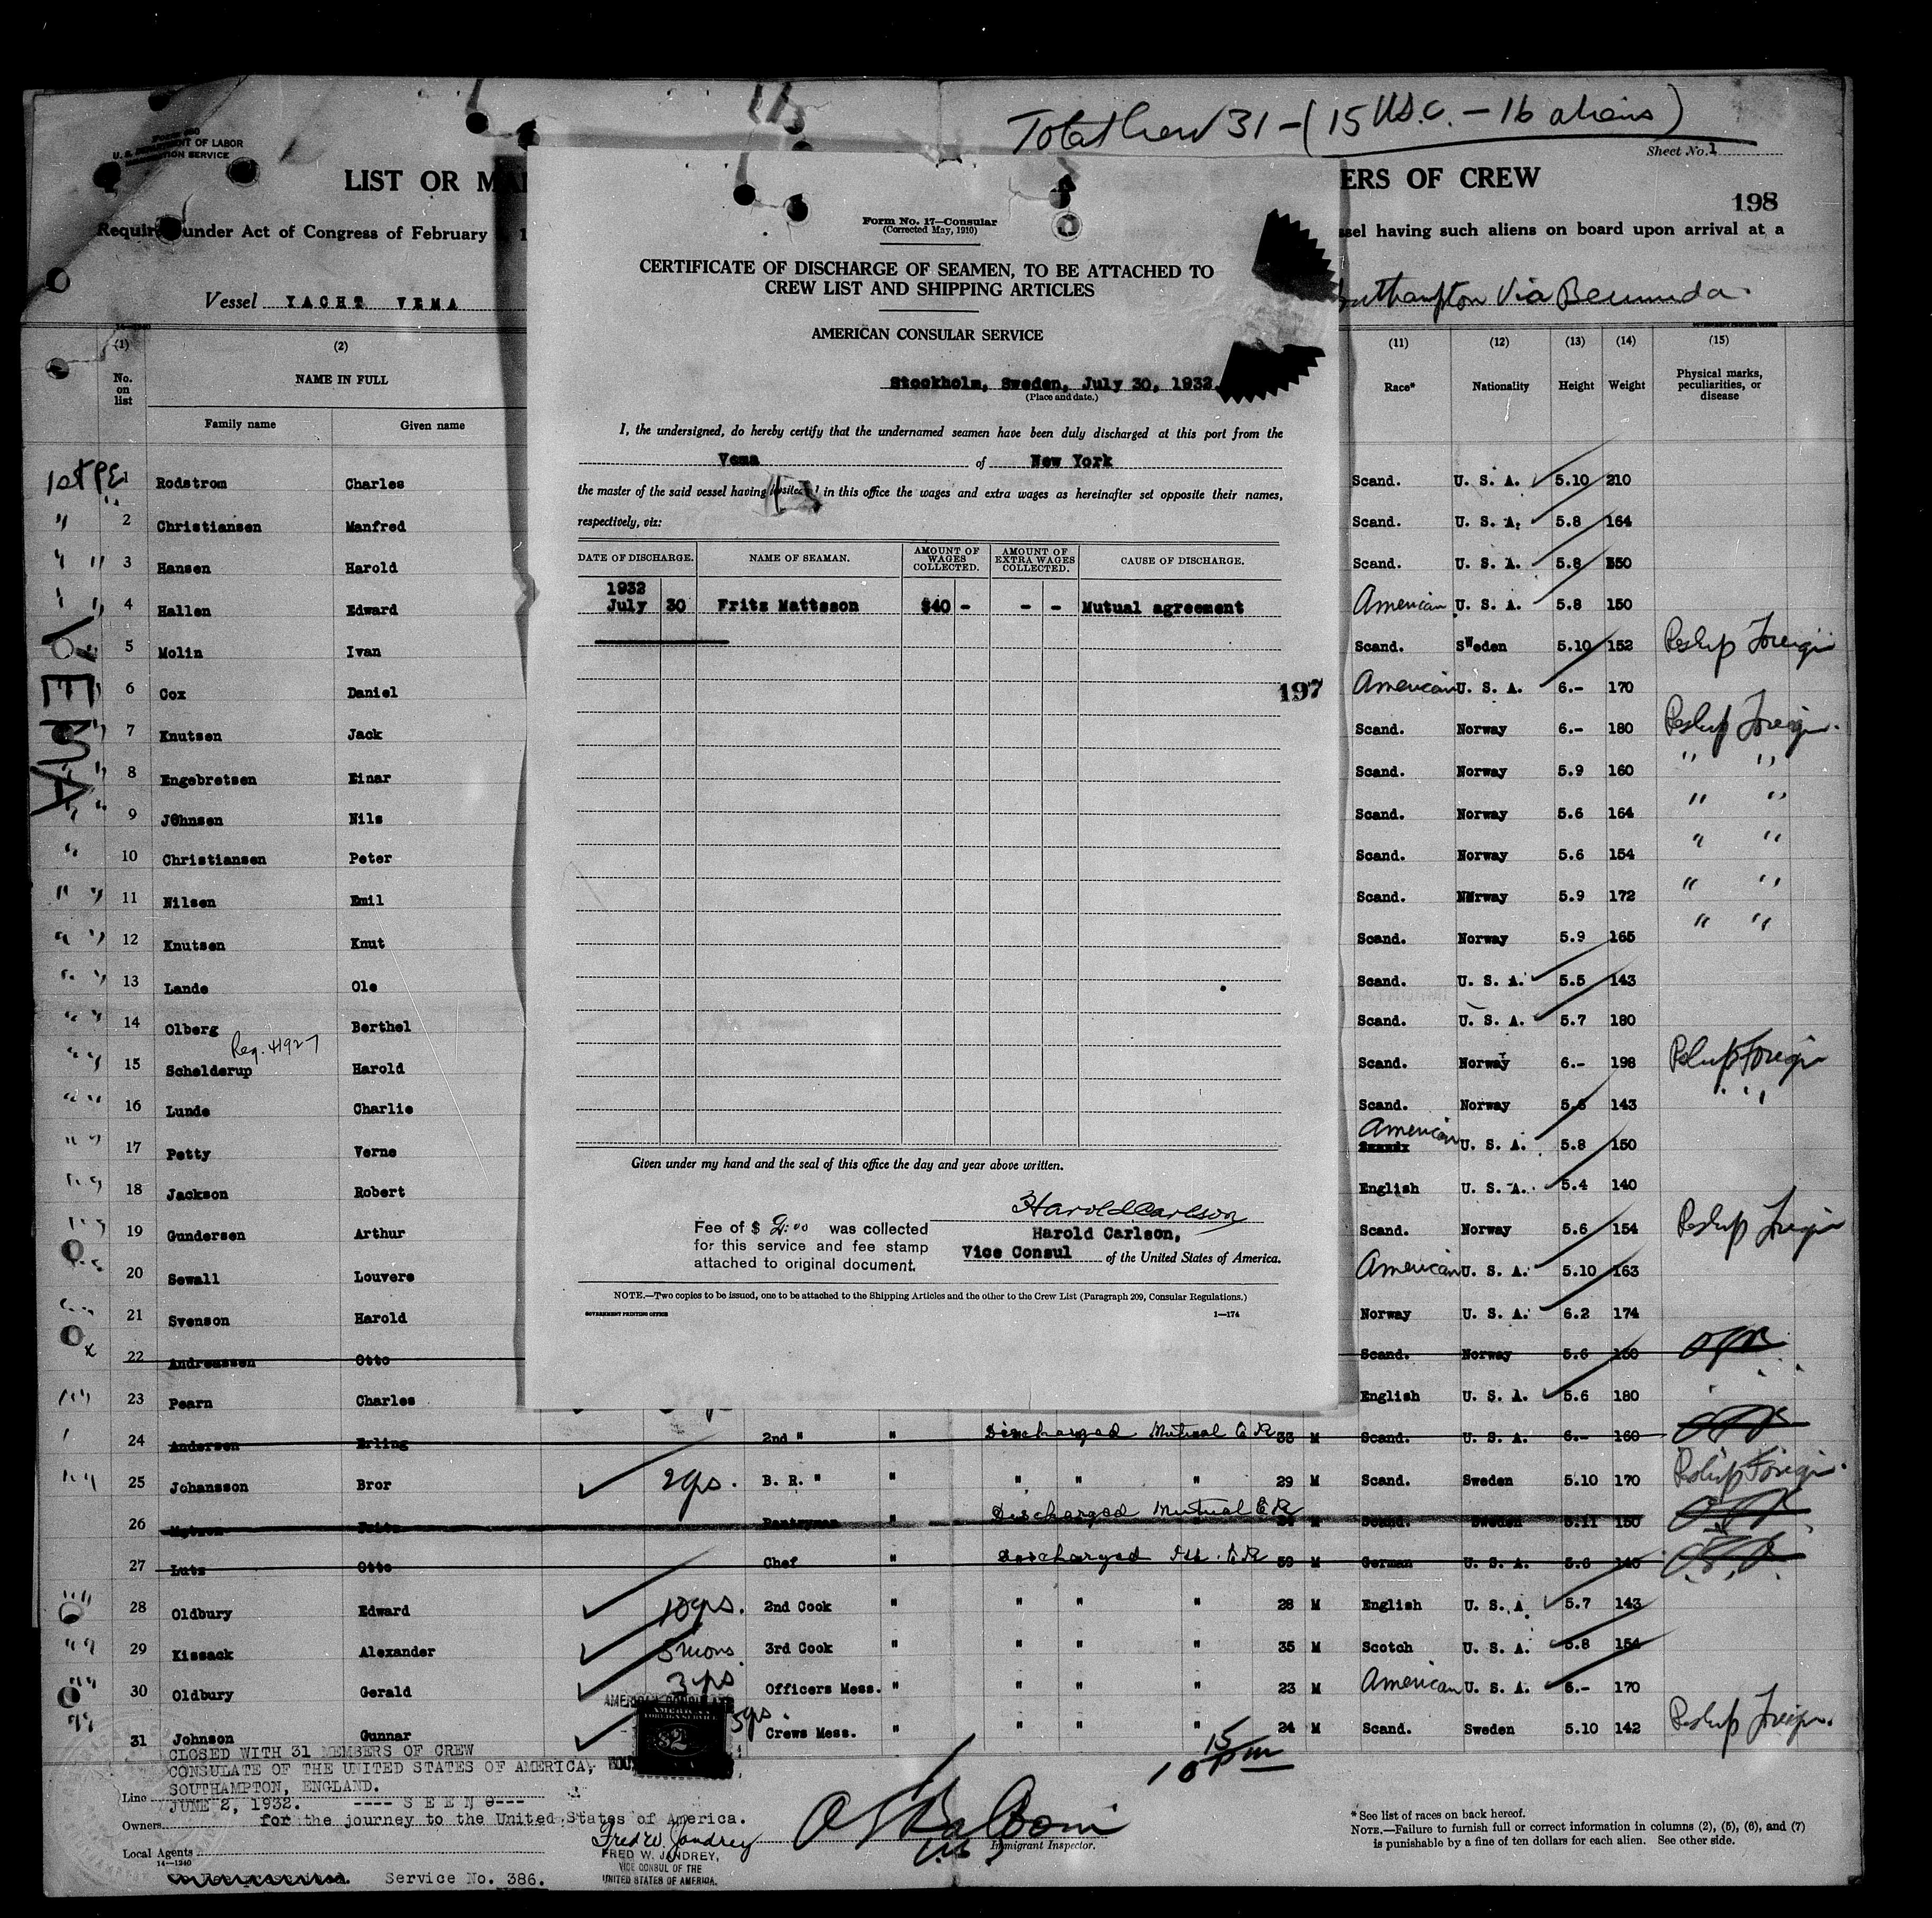 Total Crew 31 - (15 U.S.C. - 16 aliens)
Sheet No. 1
U. S. DEPARTMENT OF LABOR
IMMIGRATION SERVICE
LIST OR MA
ERS OF CREW
198
Required under Act of Congress of February
ssel having such aliens on board upon arrival at a
Vessel YACHT VEMA
Southampton Via Bermuda
Form No. 17—Consular
(Corrected May, 1910)
CERTIFICATE OF DISCHARGE OF SEAMEN, TO BE ATTACHED TO
CREW LIST AND SHIPPING ARTICLES
AMERICAN CONSULAR SERVICE
Stockholm, Sweden, July 30, 1932.
(Place and date.)
I, the undersigned, do hereby certify that the undernamed seamen have been duly discharged at this port from the
Vema of New York
the master of the said vessel having deposited in this office the wages and extra wages as hereinafter set opposite their names,
respectively, viz:
DATE OF DISCHARGE. NAME OF SEAMAN. AMOUNT OF WAGES COLLECTED. AMOUNT OF EXTRA WAGES COLLECTED. CAUSE OF DISCHARGE.
1932
July 30 Fritz Mattsson $40 - - - Mutual agreement
197
Given under my hand and the seal of this office the day and year above written.
Harold Carlson
Harold Carlson,
Vice Consul of the United States of America.
Fee of $ 2.00 was collected
for this service and fee stamp
attached to original document.
NOTE.—Two copies to be issued, one to be attached to the Shipping Articles and the other to the Crew List (Paragraph 209, Consular Regulations.)
GOVERNMENT PRINTING OFFICE 1—174
VEMA
(1) (2) (11) (12) (13) (14) (15)
No. on list NAME IN FULL Race* Nationality Height Weight Physical marks, peculiarities, or disease
Family name Given name
1 Rodstrom Charles Scand. U. S. A. 5.10 210
2 Christiansen Manfred Scand. U. S. A. 5.8 164
3 Hansen Harold Scand. U. S. A. 5.8 150
4 Hallen Edward American U. S. A. 5.8 150
5 Molin Ivan Scand. Sweden 5.10 152 Reship Foreign
6 Cox Daniel American U. S. A. 6.- 170
7 Knutsen Jack Scand. Norway 6.- 180 Reship Foreign.
8 Engebretsen Einar Scand. Norway 5.9 160 " "
9 Johnsen Nils Scand. Norway 5.6 164 " "
10 Christiansen Peter Scand. Norway 5.6 154 " "
11 Nilsen Emil Scand. Norway 5.9 172 " "
12 Knutsen Knut Scand. Norway 5.9 165 " "
13 Lande Ole Scand. U. S. A. 5.5 143
14 Olberg Berthel Scand. U. S. A. 5.7 180
Reg. 41927
15 Schelderup Harold Scand. Norway 6.- 198 Reship Foreign
16 Lunde Charlie Scand. Norway 5.6 143 " "
17 Petty Verne American U. S. A. 5.8 150
18 Jackson Robert English U. S. A. 5.4 140
19 Gundersen Arthur Scand. Norway 5.6 154 Reship Foreign
20 Sewall Louvere American U. S. A. 5.10 163
21 Svenson Harold Norway U. S. A. 6.2 174
22 Andreassen Otto Scand. Norway 5.6 150
23 Pearn Charles English U. S. A. 5.6 180
24 Andersen Erling 2nd " " Discharged Mutual 33 M Scand. U. S. A. 6.- 160
25 Johansson Bror 2 yrs. B. R. " " " " " 29 M Scand. Sweden 5.10 170 Reship Foreign.
26 Pantryman " Discharged Mutual M Scand. Sweden 5.11 150
27 Lutz Otto Chef " Discharged 50 M German U. S. A. 5.6
28 Oldbury Edward 10 yrs. 2nd Cook " " " " 28 M English U. S. A 5.7 143
29 Kissack Alexander 5 mons. 3rd Cook " " " " 35 M Scotch U. S. A. 5.8 154
30 Oldbury Gerald 3 yrs Officers Mess. " " " " 23 M American U. S. A. 6.- 170
31 Johnson Gunnar 5 yrs. Crews Mess. " " " " 24 M Scand. Sweden 5.10 142 Reship Foreign.
CLOSED WITH 31 MEMBERS OF CREW
CONSULATE OF THE UNITED STATES OF AMERICA,
SOUTHAMPTON, ENGLAND.
Line JUNE 2, 1932. ---- S E E N ----
Owners for the journey to the United States of America.
Fred W. Jandrey
Local Agents
FRED W. JANDREY,
VICE CONSUL OF THE
UNITED STATES OF AMERICA.
14—1240
Service No. 386.
Immigrant Inspector.
* See list of races on back hereof.
NOTE.—Failure to furnish full or correct information in columns (2), (5), (6), and (7)
is punishable by a fine of ten dollars for each alien. See other side.